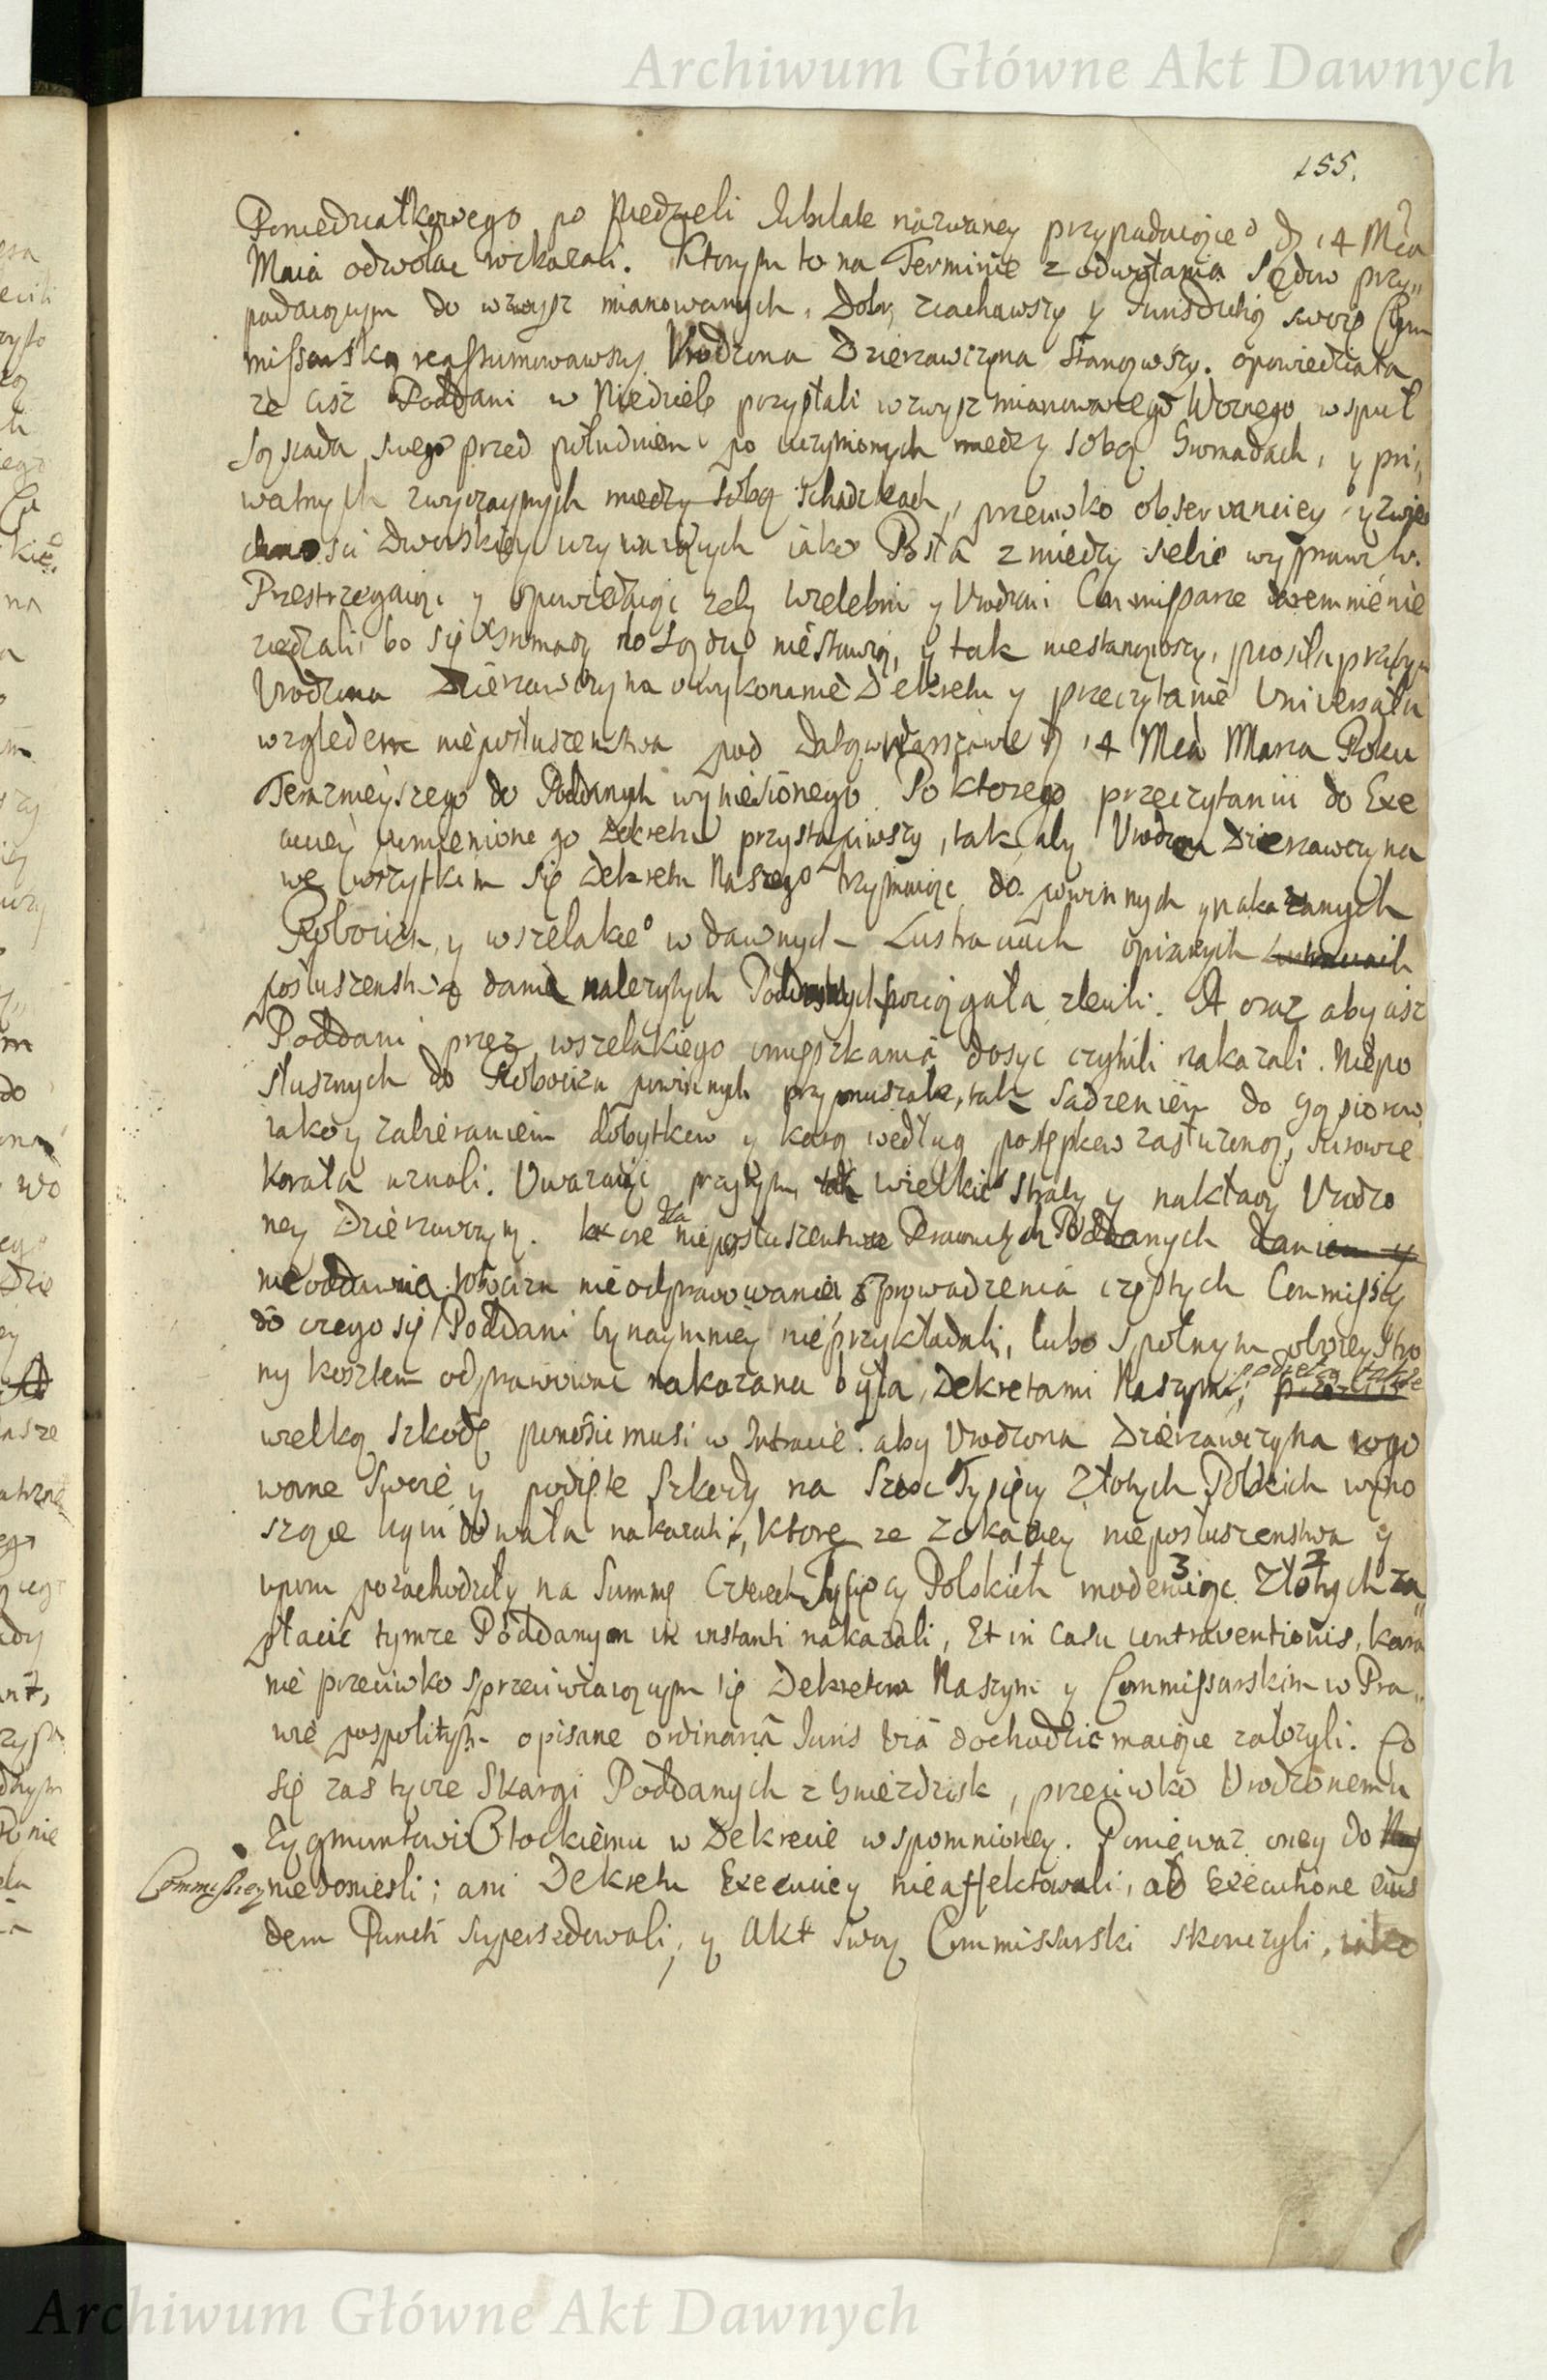 Archiwum Główne Akt Dawnych
155.
Poniedziałkowego po Niedzieli Jubilate nazwaney przypadaiące° D 14 Mca
Maia odwołac wskazali. Ktorym to na Terminie z odwołania Sądow przy„
padaiącym do wzwysz mianowanych Dobr, ziachawszy y Iurisdictią swoię Com
missarską reassumowawszy Urodzona Dzierzawczyna Stanąwszy. opowiedziała
ze ciż Poddani w Niedziele przysłali wzwysz mianowanego Woznego w spuł
Sąsiada swego przed południem po uczynionych miedzy sobą Gromadach, y pri„
watnych zwyczaynych miedzy sobą schadzkach, przeciwko observanciey y zwie
chnosci Dworskiey uzywaiących iako Posła z miedzy siebie wyprawili.
Przestrzegaiąc y opowiedaiąc zeby Wielebni y Urodzeni Commissarze daremnie nie
ziezdzali, bo się Gromady do Sądu nie stawią, y tak niestanąwszy, prosiła przytym
Urodzona Dzierzawczyna o wykonanie Dekretu y przeczytanie Universału
wzgledem nieposłuszenstwa pod Datą w Warszawie D 14 Mca Marca Roku
Teraznieyszego do Poddanych wyniesionego. Po ktorego przeczytaniu do Exe
cuciey wmienionego Dekretu przystąpiwszy, tak aby Urodzona Dzierzawczyna
we wszytkim się Dekretu Naszego trzymaiąc do powinnych y nakazanych
Robocizn, y wszelakie° w dawnych Lustraciach opisanych Lustraciach
posłuszenstwa danie nalezytych Poddanych pociągała zlecili. A oraz aby ciż
Poddani przez wszelakiego omieszkania dosyc czynili nakazali. Niepo
słusznych do Robocizn powinnych przymuszałe, tak sadzeniem do Gąsiorow
iako y zabieraniem dobytkow y karą według postępkow zasłuzoną, surowie
karała uznali. Uwazaiąc przytym tak wielkie straty y nakłady Urodzo
ney Dzierzawczyny. ktore dla nieposłuszenstwa Poddanych daniem y
nieoddawania robocizn nieodprawowania sprowadzenia częstych Commissiy
do czego się Poddani bynaymniey nieprzykładali, lubo spolnym oboiey Stro
ny kosztem odprawowac nakazana była, Dekretami Naszymi, podięła także
wielką szkodę ponosic musi w Intracie. aby Urodzona Dzierzawczyna
swoie y podięte szkody na Szesc Tysięcy Złotych Polskich wyno
szące liquidowała nakazali, Ktorę ze z okaziey nieposłuszenstwa y
uporu pozachodziły na Summę Czterech Tysięcy Polskich 3 moderuiąc 2 Złotych za„
płacic tymze Poddanym in instanti nakazali, Et in casu contraventionis, kara
nie przeciwko sprzeciwiaiącym się Dekretom Naszym y Commissarskim w Pra„
wie pospolitym opisane ordinaria Iuris via dochodzic maiące załozyli. Co
się zas tycze Skargi Poddanych z Gniezdzisk, przeciwko Urodzonemu
Zygmuntowi Błockiemu w Dekrecie wspomnioney. Poniewaz oney do
Commissiey niedoniesli; ani Dekretu Execuciey nieaffektowali, ab Executione eius
dem Puncti superszedowali, y Akt swoy Commissarski skonczyli, iako
Archiwum Główne Akt Dawnych